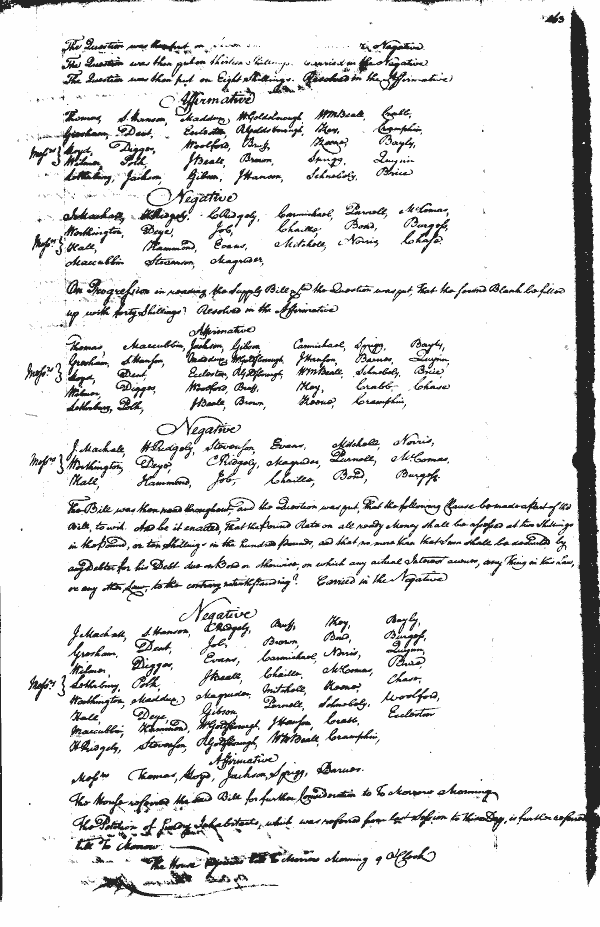 463
The Question was then put on Negative
The Question was then put on thirteen Shillings carried in the Negative
The Question was then put on Eight Shillings. Resolved in the Affirmative
Affirmative
Thomas, S. Hanson, Maddux, W Goldsborough, Wm Beall, Crabb,
Gresham, Dent, Eccleston, R Goldsborough, Key, Cramphin,
Mess.rs } Lloyd, Digges, Woolford, Buss, Keene, Bayly,
Wilmer, Polk, J Beall, Brown, Sprigg, Quynn
Lethrbury, Jackson, Gibson, J Hanson, Schnebely, Brice
Negative
J. Mackall, H Ridgely, C Ridgely, Carmichael, Purnell, McComas,
Worthington, Deye, Job, Chaille, Bond, Burgess,
Mess.rs } Hall, Hammond, Evans, Mitchell, Norris, Chase.
Maccubbin Stevenson, Magruder,
On Progression in reading the Supply Bill the Question was put, That the second Blank be filled
up with forty Shillings? Resolved in the Affirmative
Affirmative
Thomas Maccubbin, Jackson, Gibson Carmichael, Sprigg, Bayly,
Gresham, S. Hanson, Maddux, W Goldsborough, J Hanson, Barnes, Quynn,
Mess.rs } Lloyd, Dent, Eccleston, R Goldsborough, Wm Beall, Schnebely, Brice
Wilmer, Digges, Woolford, Buss, Key, Crabb Chase
Lethrbury, Polk, J Beall, Brown, Keene, Cramphin,
Negative
J. Mackall, H Ridgely, Stevenson, Evans, Mitchell, Norris,
Mess.rs } Worthington, Deye, C Ridgely, Magruder, Purnell, McComas,
Hall, Hammond, Job, Chaille, Bond, Burgess.
The Bill was then read throughout, and the Question was put, That the following Clause be made a part of the
Bill, to wit. And be it enacted, that the Pound Rate on all ready Money shall be assessed at two Shillings
in the Pound, or ten Shillings in the hundred pounds, and that no more than that Sum shall be by
any Debtor for his Debt due on Bond or otherwise, on which any actual Interest accrues, any Thing in this Law,
or any other Law, to the contrary notwithstanding? Carried in the Negative
Negative
J. Mackall, S. Hanson, C Ridgely, Buss, Key, Bayly,
Gresham, Dent, Job, Brown, Bond, Burgess,
Wilmer, Digges, Evans, Carmichael, Norris, Quynn,
Mess.rs } Lethrbury, Polk, J Beall, Chaille, McComas, Brice
Worthington, Maddux, Magruder, Mitchell, Keene, Chase,
Hall, Deye, Gibson Purnell, Schnebely, Woolford,
Maccubbin, Hammond, W Goldsborough, J Hanson, Crabb, Eccleston
H Ridgely, Stevenson, R Goldsborough, Wm Beall, Cramphin,
Affirmative
Mess.rs Thomas, Lloyd, Jackson, Sprigg, Barnes.
The House referred the said Bill for further Consideration to To Morrow Morning.
The Petition of Inhabitants, which was referred from last Session to this Day, is further referred
till To Morrow.
The House adjourns till To Morrow Morning 9 o'Clock